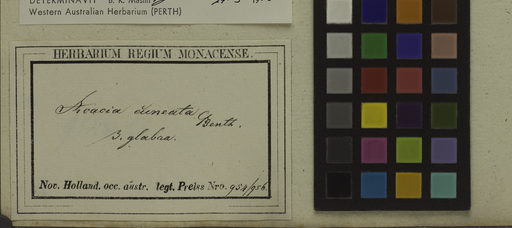 DETERMINAVIT B. R. Maslin
Western Australian Herbarium (PERTH)
HERBARIUM REGIUM MONACENSE.
Acacia cuneata Benth.
β. glabra.
Nov. Holland. occ. austr. legt. Preiss Nro. 954/956